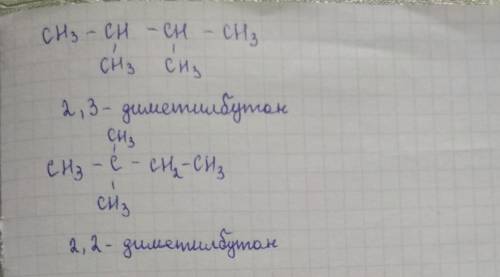 CH3 - CH - CH - CH3
CH3 CH3
2,3 - диметилбутан
CH3
CH3 - C - CH2 - CH3
CH3
2,2 - диметилбутан